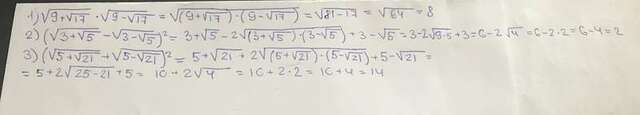 1) √9+√17 · √9-√17 = √(9+√17)·(9-√17) = √81-17 = √64 = 8
2) (√3+√5 - √3-√5)² = 3+√5 - 2√(3+√5)·(3-√5) + 3-√5 = 3-2√9-5+3 = 6-2√4 = 6-2·2 = 6-4 = 2
3) (√5+√21 + √5-√21)² = 5+√21 + 2√(5+√21)·(5-√21) + 5-√21 =
= 5+2√25-21+5 = 10+2√4 = 10+2·2 = 10+4 = 14